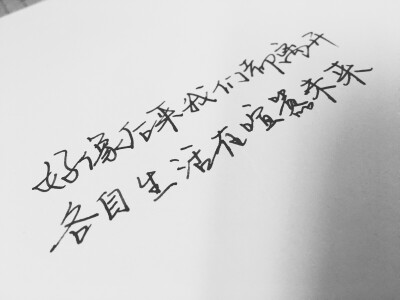 好像后来我们都离开
各自生活在喧嚣未来